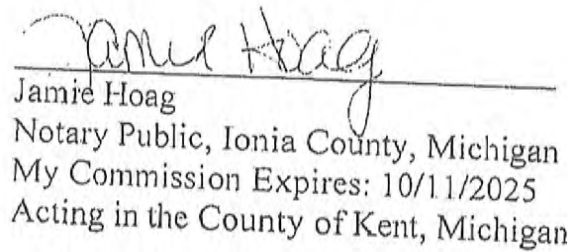 Jamie Hoag
Jamie Hoag
Notary Public, Ionia County, Michigan
My Commission Expires: 10/11/2025
Acting in the County of Kent, Michigan